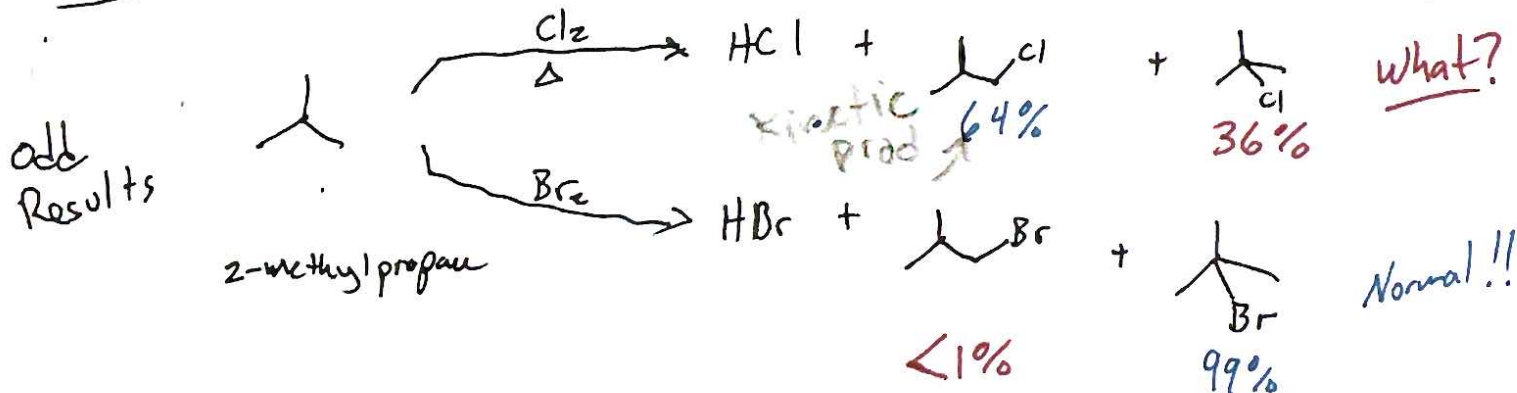 Odd
Results
2-methylpropane
Cl2
Δ
HCl + Cl + Cl What?
kinetic
prod
64%
36%
Br2
HBr + Br + Br Normal!!
<1%
99%